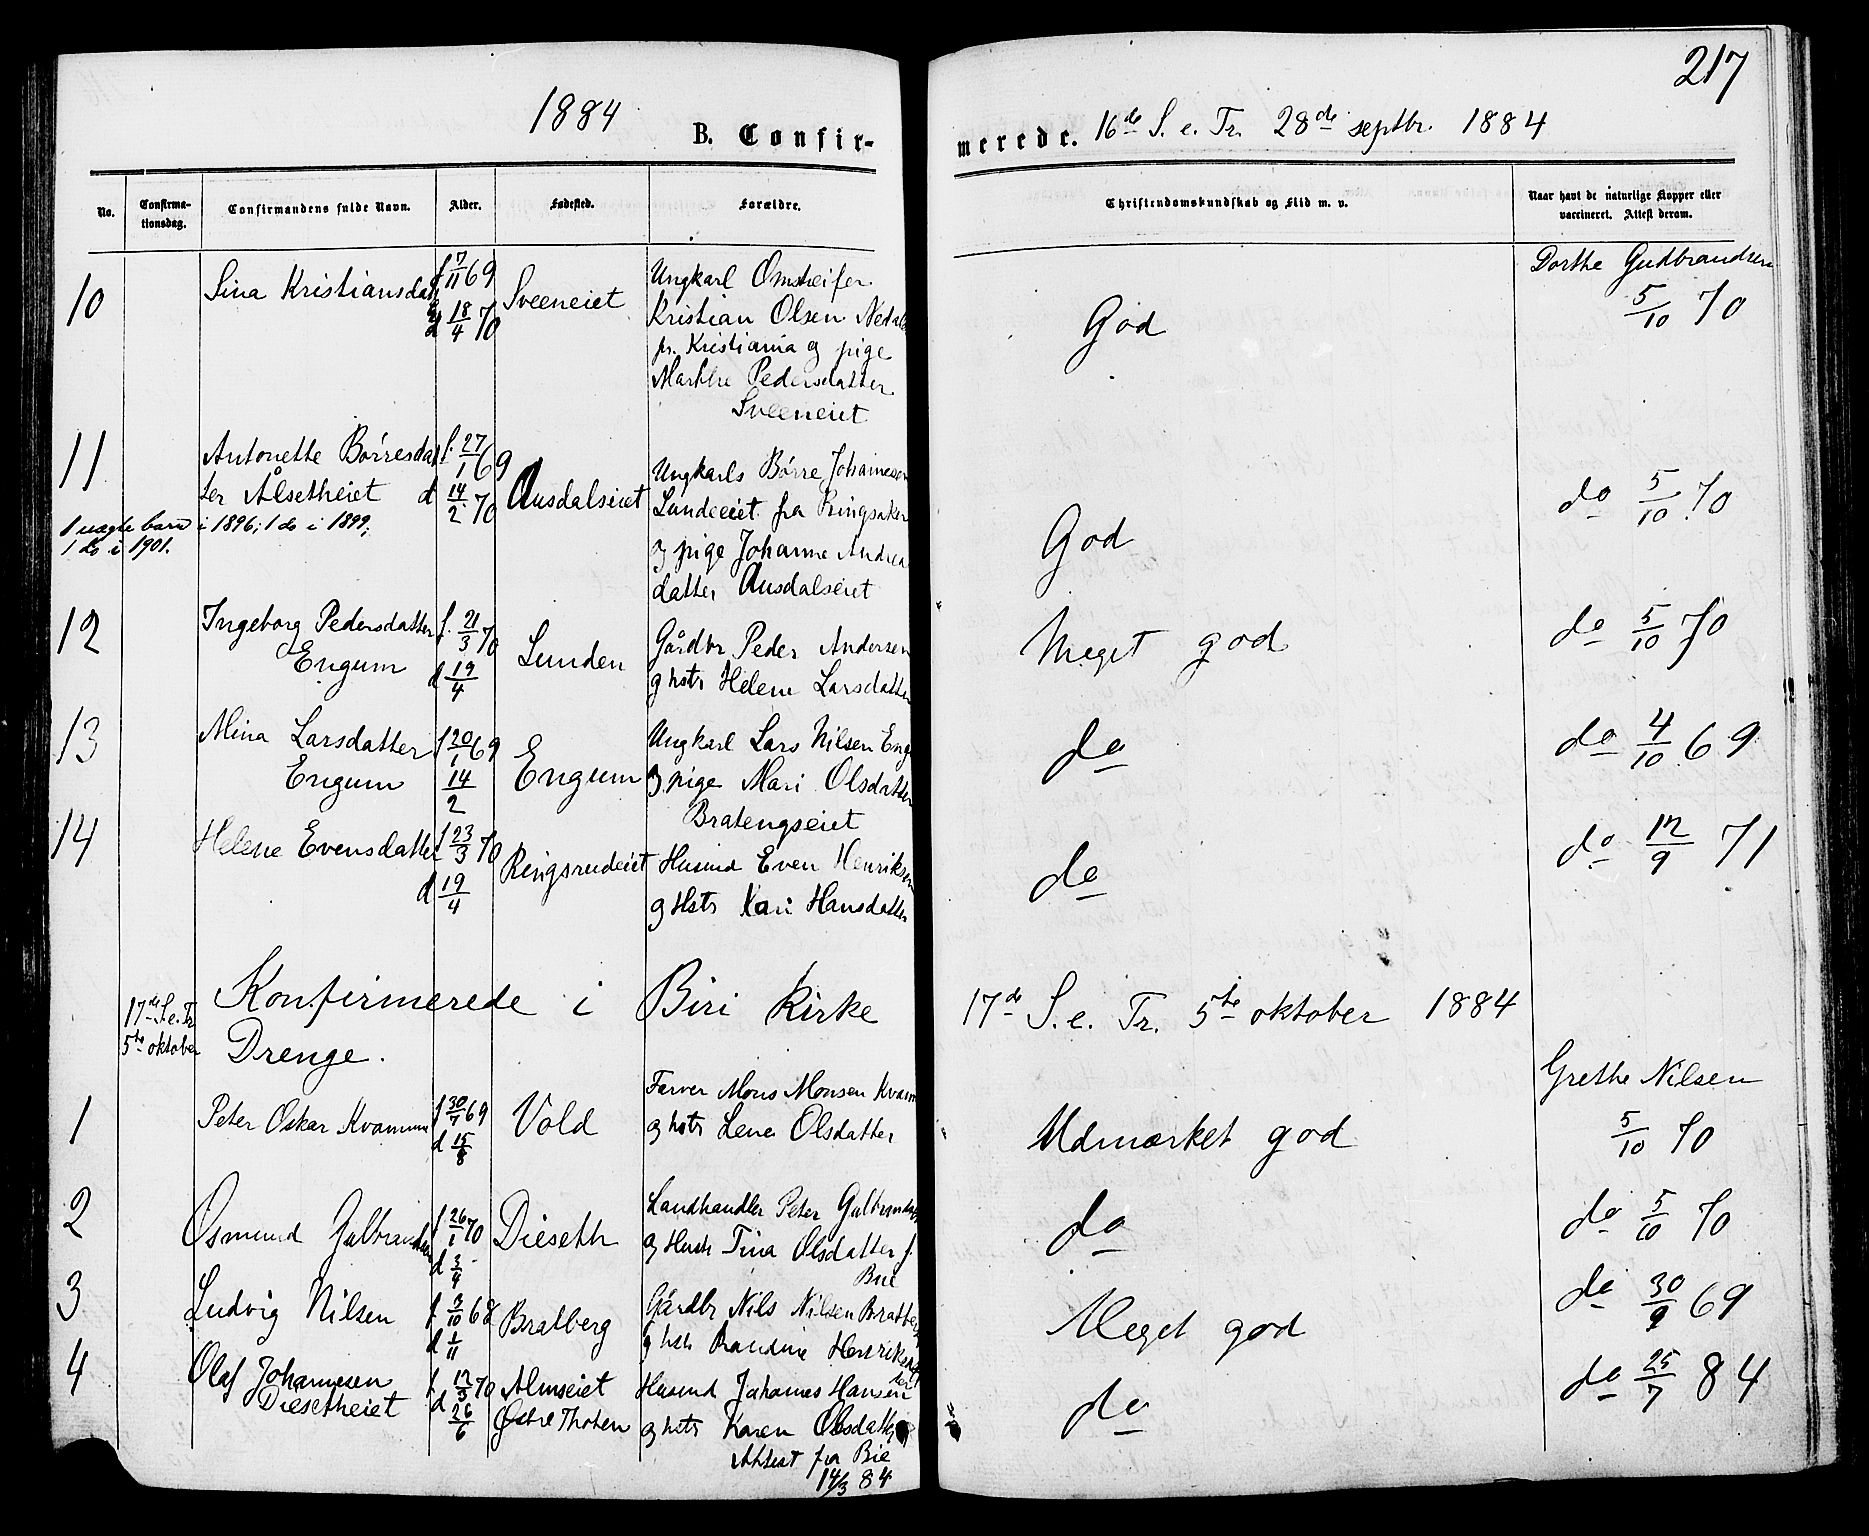 217
1884
B. Confir-
merede. 16de S. e. Tr. 28de septbr. 1884
No.
Confirma-
tionsdag.
Confirmandens fulde Navn.
Alder.
Fødested.
Forældre.
Christendomskundskab og Flid m. v.
Naar havt de naturlige Kopper eller
vaccineret. Attest derom.
10
Sina Kristiansdat
f 7/11 69
d 18/4 70
Sveeneiet
Ungkarl
Kristian Olsen
fr. Kristiania og pige
Marthe Pedersdatter
Sveeneiet
God
Dorthe Gudbrandsen
5/10 70
11
Antonette Børresdat
ter Alsetheiet
1 uægte barn i 1896; 1 do i 1899;
1 do i 1901.
f. 27/1 69
d 14/2 70
Ausdalseiet
Ungkarls Børre Johannesen
Lundeeiet fra Ringsaker
og pige Johanne Andrea
datter Ausdalseiet
God
do 5/10 70
12
Ingeborg Pedersdatter
Engum
f. 21/3 70
d 19/4
Lunden
Gårdbr Peder Andersen
g hstr Helene Larsdatter
Meget god
do 5/10 70
13
Mina Larsdatter
Engum
f 20/1 69
14/2
Engum
Ungkarl Lars Nilsen Eng
og pige Mari Olsdatter
Bratengseiet
do
do 4/10 69
14
Helene Evensdatter
f 23/3 70
d 19/4
Ringsrudeiet
Husmd Even Henriksen
og Hstr Kari Hansdatter
do
do 12/9 71
17de S. e. Tr
5te oktober
Konfirmerede i Biri Kirke
17de S. e. Tr. 5te oktober 1884
Drenge.
1
Peter Oskar Kvamme
f 30/7 69
d 15/8
Vold
Farver Mons Monsen Kvam
og hstr Lena Olsdatter
Udmærket god
Grethe Nilsen
5/10 70
2
Osmund Gulbrandsen
f 26/1 70
d 3/4
Dieseth
Landhandler Peter Gulbrandsen
og Hustr Tina Olsdatter f.
do
do 5/10 70
3
Ludvig Nilsen
f 3/10 68
d 1/11
Bratberg
Gårdbr Nils Nilsen Bratberg
g hstr Randine Henriksdat
ter
Meget god
do 30/9 69
4
Olaf Johannesen
Diesetheiet
f. 12/3 70
d 26/6
Almseiet
Østre Thoten
Husmd Johannes Hansen
og hstr Karen Olsdatter
Attest fra
14/3 84
do
do 25/7 84